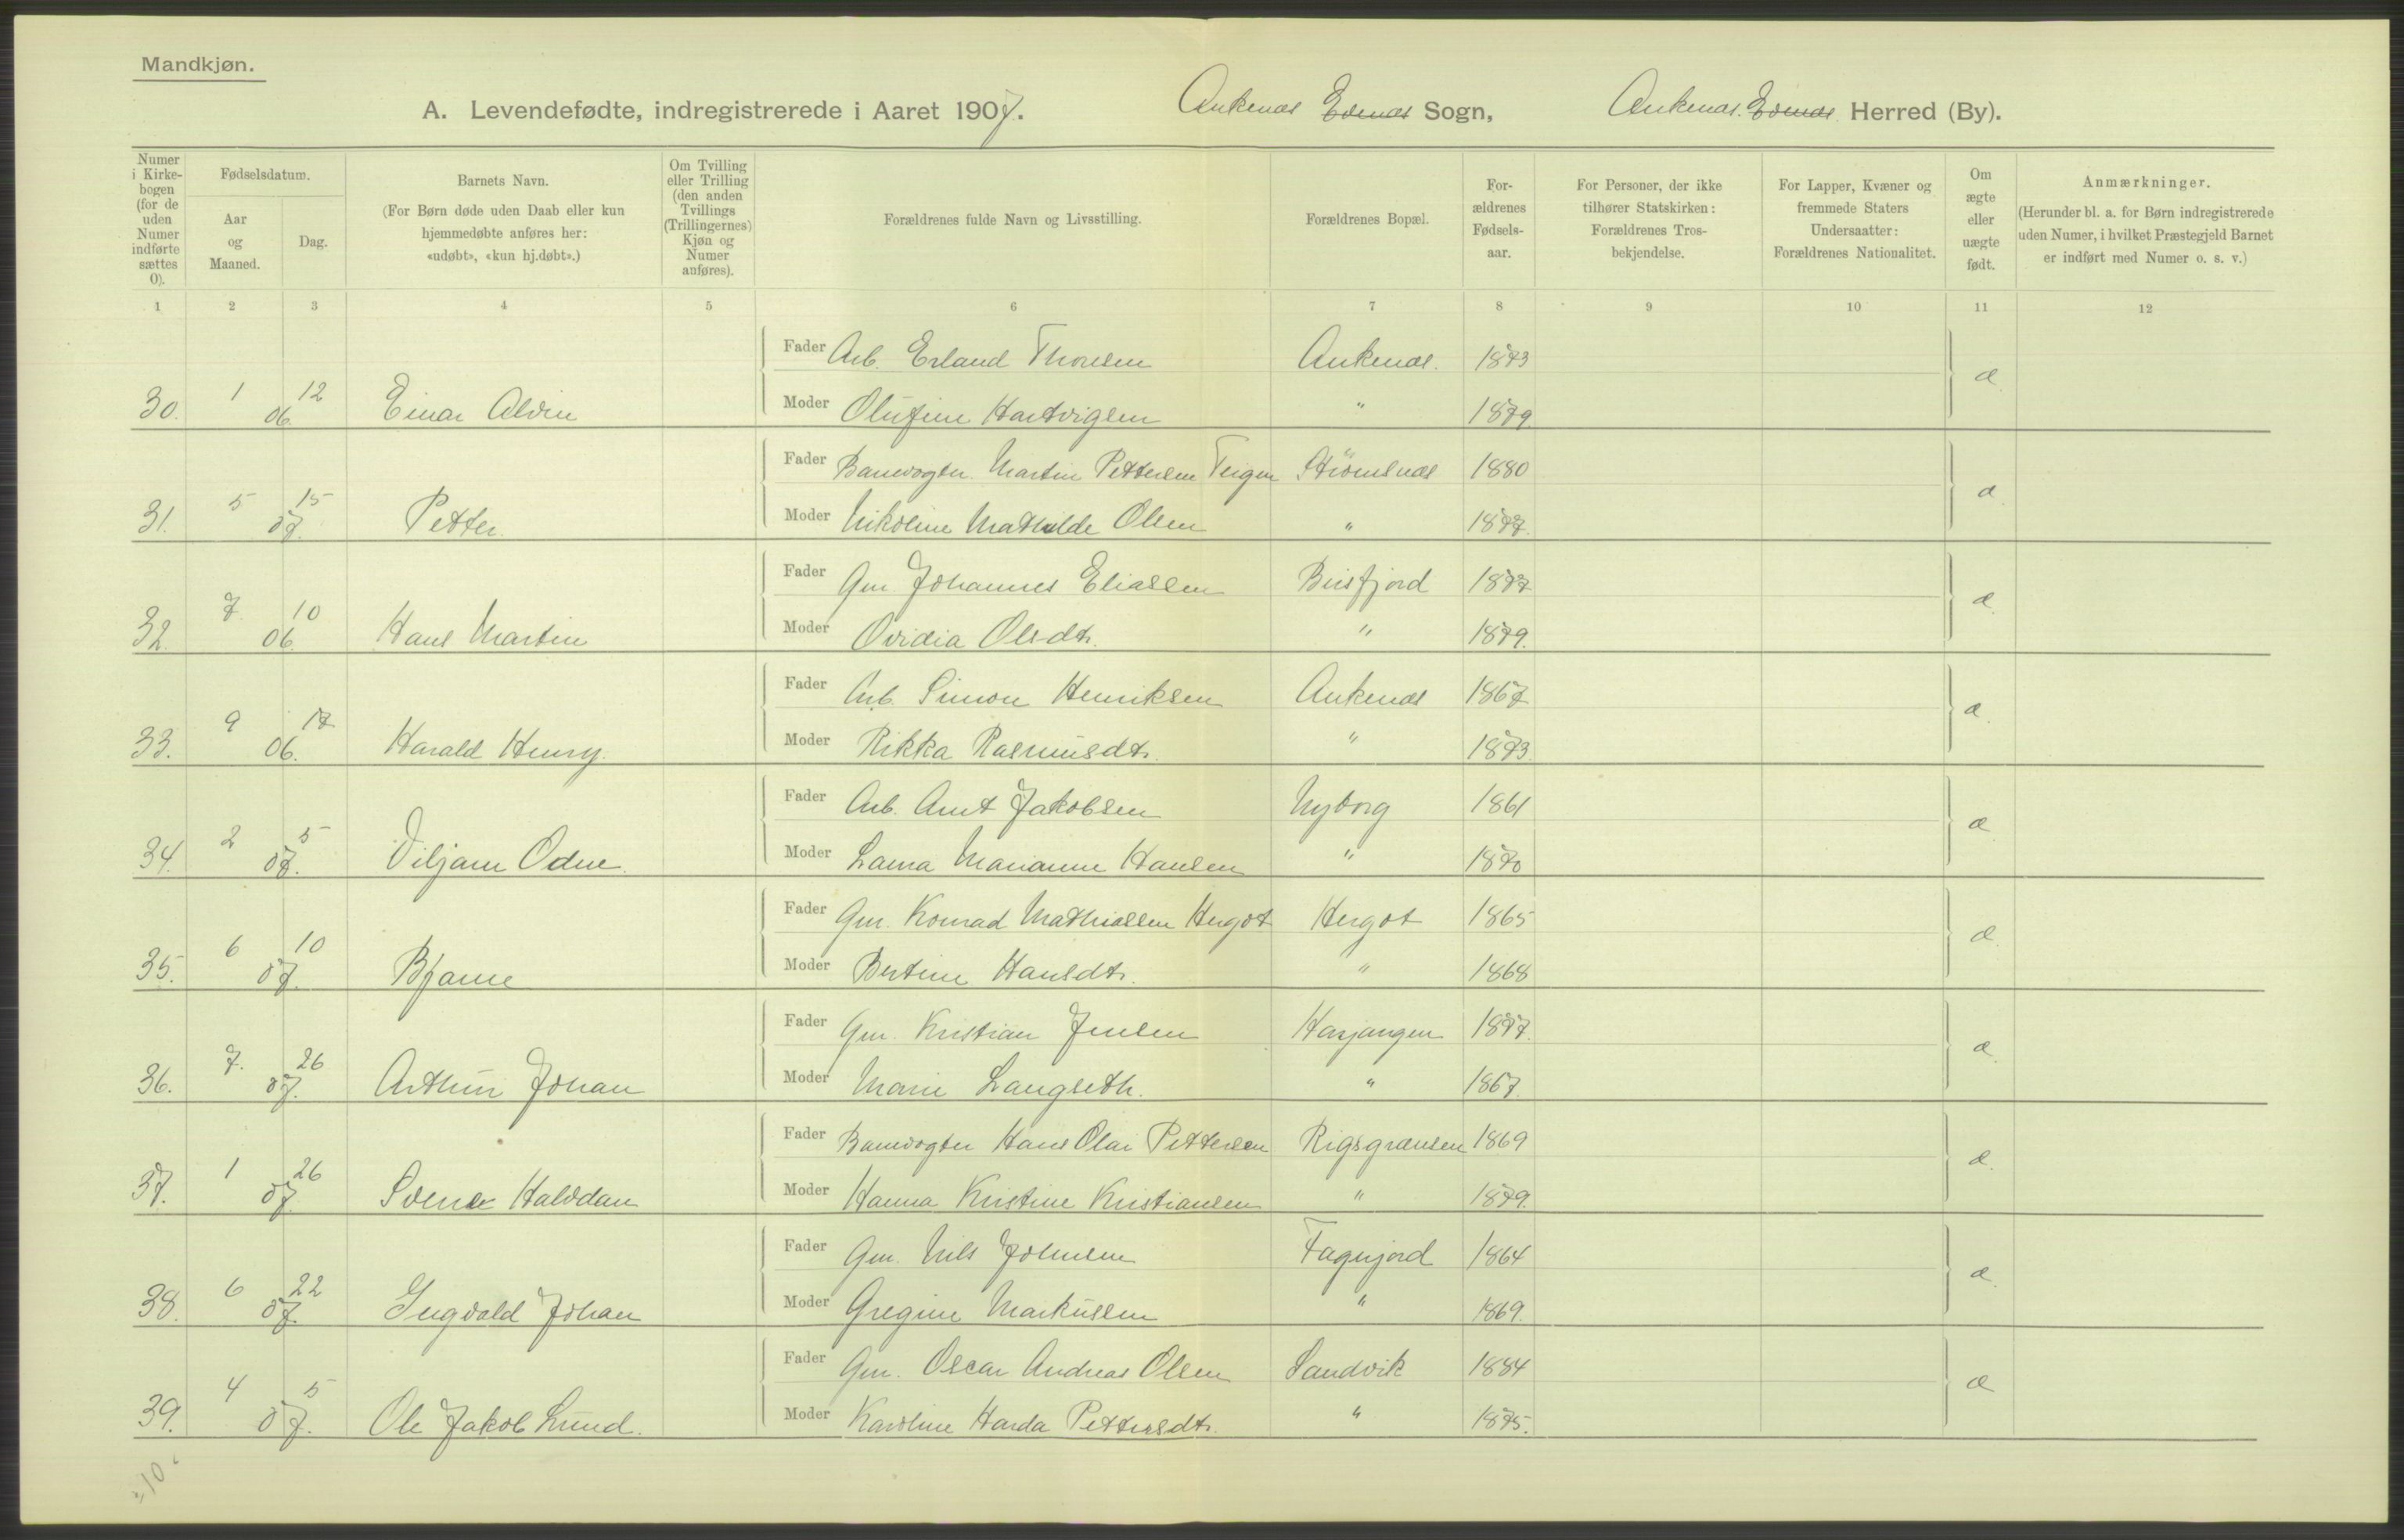 Mandkjøn.
A. Levendefødte, indregistrerede i Aaret 1907. Ankenæs Evenæs Sogn, Ankenæs. Evenæs Herred (By).
Numer i Kirkebogen (for de uden Numer indførte sættes 0).
Fødselsdatum.
Aar og Maaned.
Dag.
Barnets Navn.
(For Børn døde uden Daab eller kun
hjemmedøbte anføres her:
«udøbt», «kun hj.døbt».)
Om Tvilling
eller Trilling
(den anden
Tvillings
(Trillingernes)
Kjøn og
Numer
anføres).
Forældrenes fulde Navn og Livsstilling.
Forældrenes Bopæl.
For-
ældrenes
Fødsels-
aar.
For Personer, der ikke
tilhører Statskirken:
Forældrenes Tros-
bekjendelse.
For Lapper, Kvæner og
fremmede Staters
Undersaatter:
Forældrenes Nationalitet.
Om
ægte
eller
uægte
født.
Anmærkninger.
(Herunder bl. a. for Børn indregistrerede
uden Numer, i hvilket Præstegjeld Barnet
er indført med Numer o. s. v.)
1 2 3 4 5 6 7 8 9 10 11 12
Fader Arb. Erland Thorsen Ankenæs. 1873
30. 1 06. 12 Einar Alvin Moder Olufine Hartvigsen " 1879 æ
Fader Banevogter Martin Pettersen Teigen Strömsnæs 1880
31. 5 07. 15 Petter. Moder Nikoline Mathilde Olsen " 1877. æ
Fader Gm Johannes Eliassen Beisfjord 1877
32. 7 06. 10 Hans Martin Moder Ovidia Olsdtr. " 1879. æ
Fader Arb. Simon Henriksen Ankenæs 1867
33. 9 06. 17 Harald Henry. Moder Rikka Rasmusdtr. " 1873. æ
Fader Arb. Arnt Jakobsen Nyborg 1861
34. 2 07. 5 Viljam Odin. Moder Laura Marianne Hansen " 1870 æ
Fader Gm. Konrad Mathiassen Hergot Hergot 1865
35. 6 07. 10 Bjarne Moder Bertine Hansdtr. " 1868 æ
Fader Gm. Kristian Jensen Herjangen 1877.
36. 7. 07. 26 Arthur Johan Moder Marie Langseth. " 1867. æ
Fader Banevogter Hans Olai Pettersen Rigsgrænsen 1869
37. 1 07. 26 Halvdan Moder Hanna Kristine Kristiansen " 1879. æ
Fader Gm. Nils Johnsen Fagerjord 1864
38. 6 07. 22 Ingvald Johan Moder Gregine Markussen " 1869. æ
Fader Gm. Oscar Andreas Olsen Sandvik 1884
39. 4 07. 5 Ole Jakob Lund. Moder Karoline Harda Pettersdtr. " 1875. æ
10